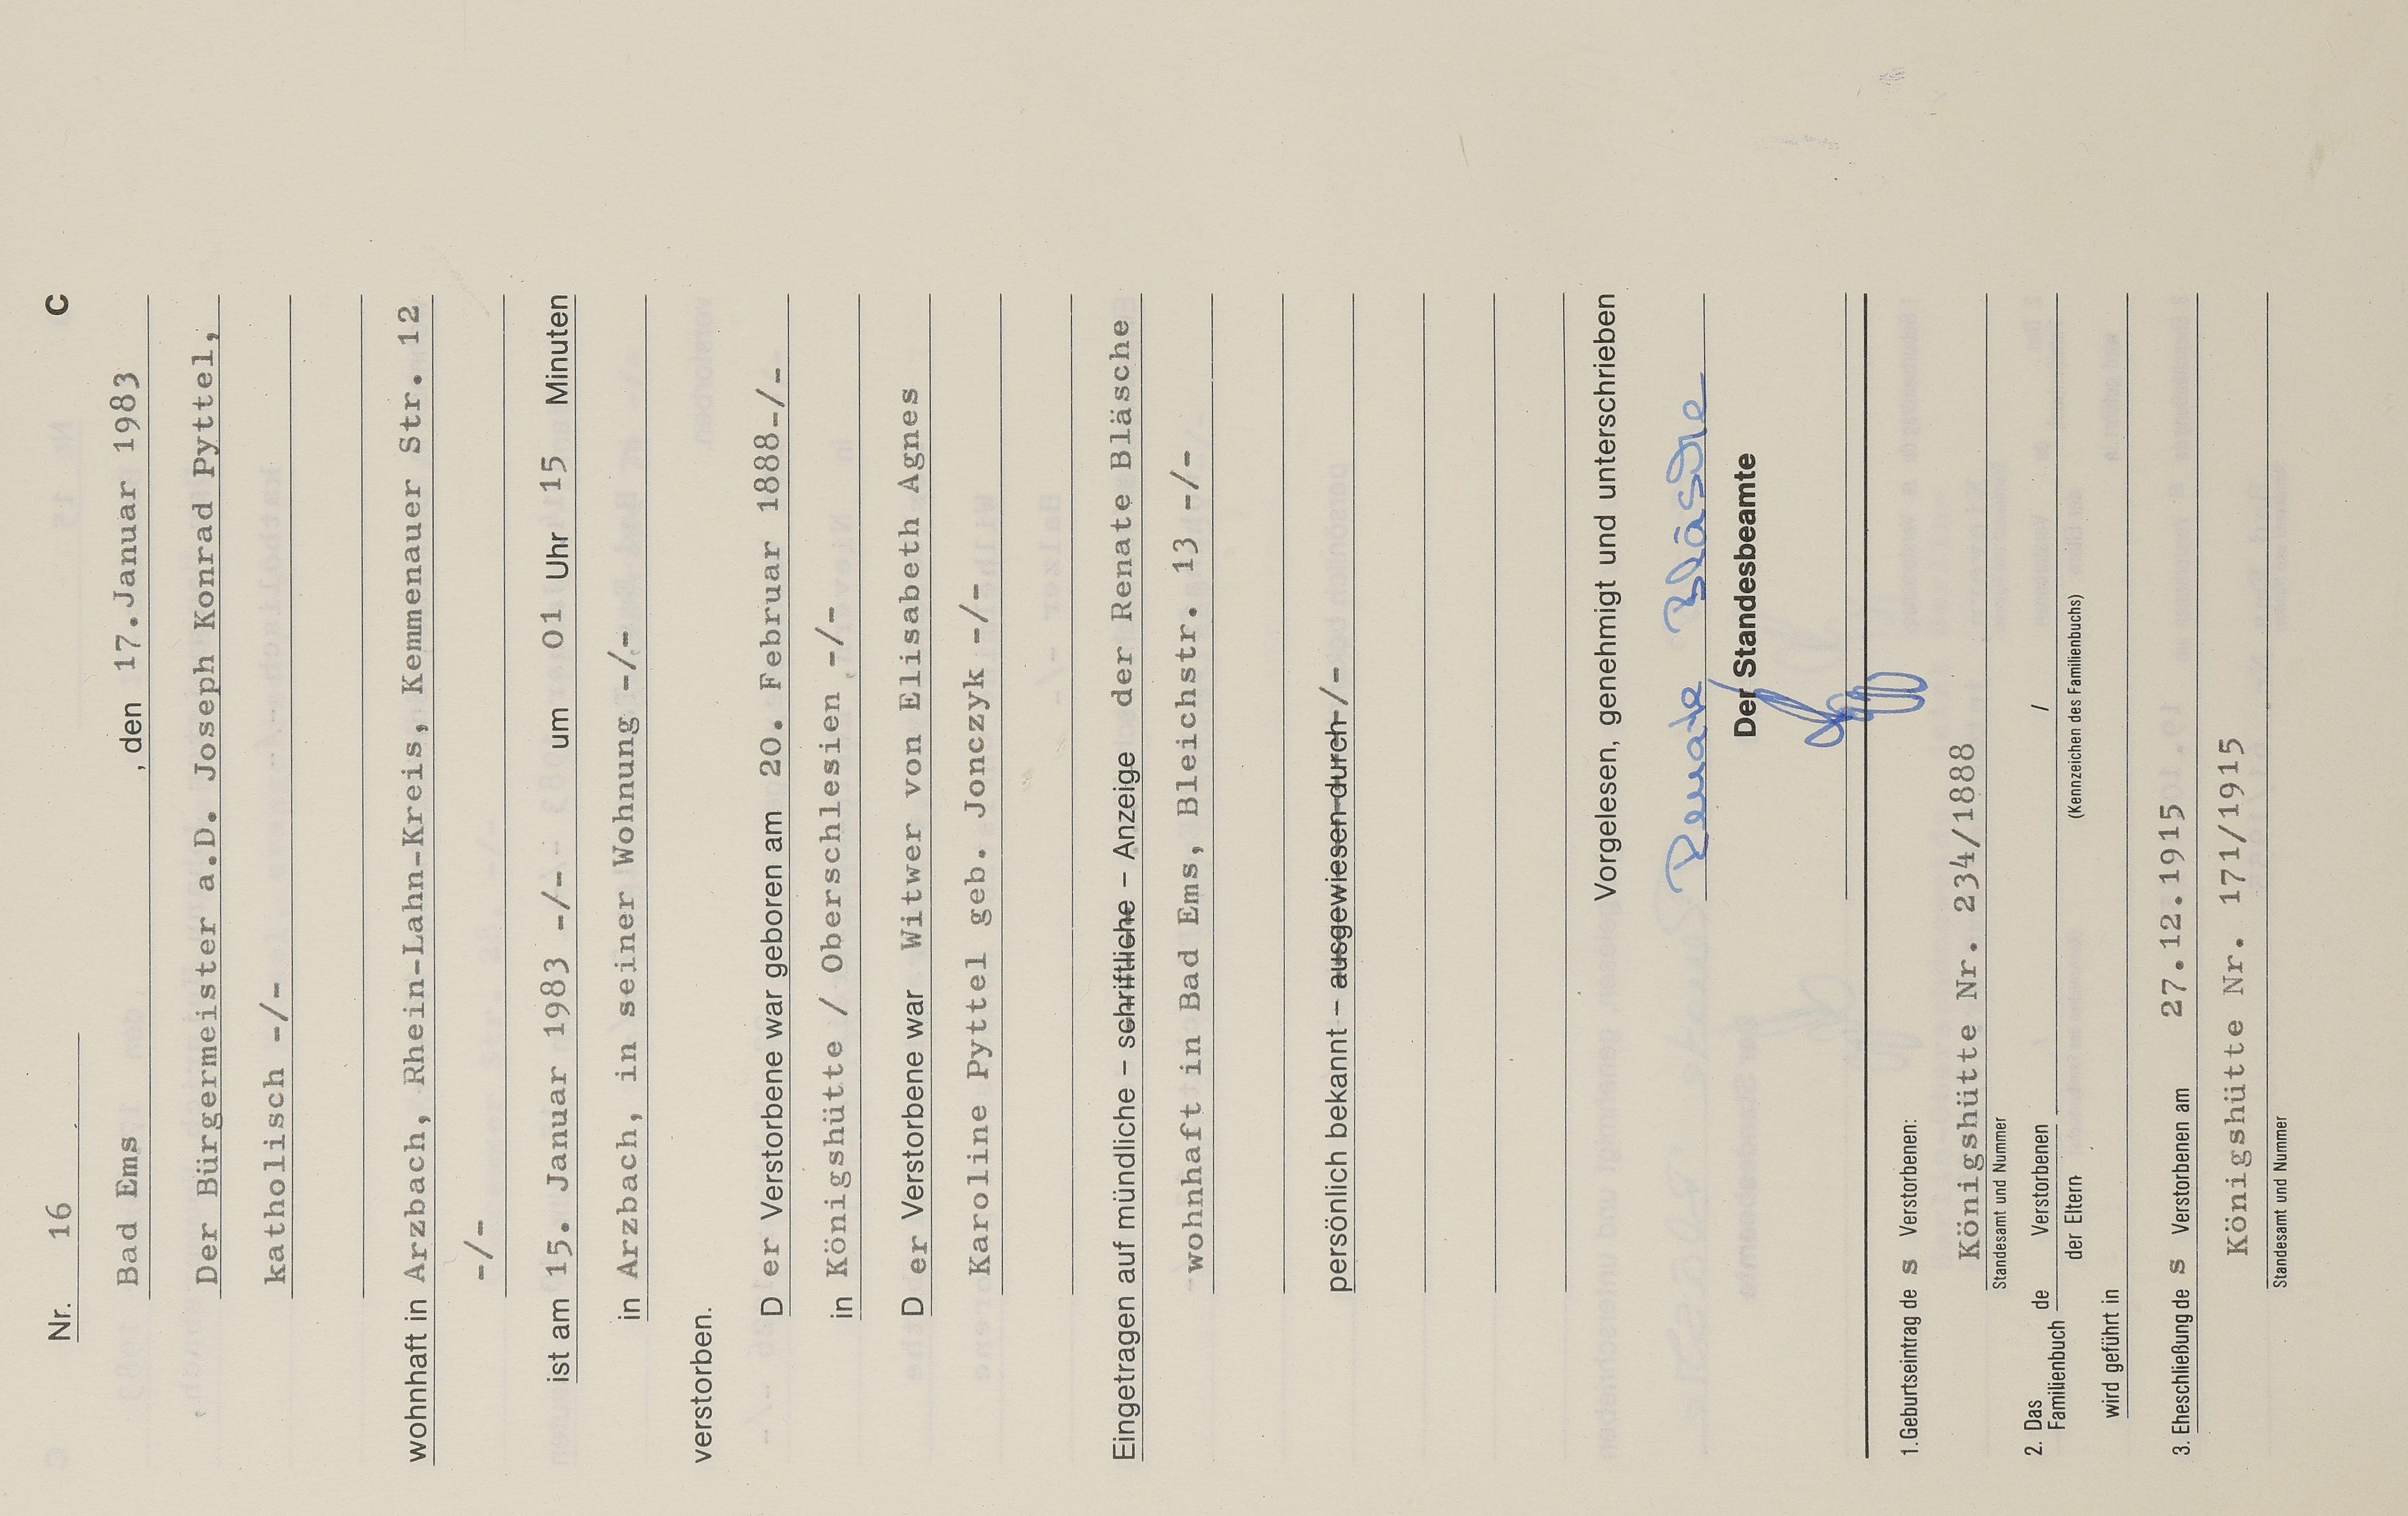 Nr. 16 C
Bad Ems , den 17.Januar 1983
Der Bürgermeister a.D. Joseph Konrad Pyttel,
katholisch -/-
wohnhaft in Arzbach, Rhein-Lahn-Kreis, Kemmenauer Str. 12
-/-
ist am 15. Januar 1983 -/- um 01 Uhr 15 Minuten
in Arzbach, in seiner Wohnung -/-
verstorben.
D er Verstorbene war geboren am 20. Februar 1888-/-
in Königshütte / Oberschlesien -/-
D er Verstorbene war Witwer von Elisabeth Agnes
Karoline Pyttel geb. Jonczyk -/-
Eingetragen auf mündliche – schriftliche – Anzeige der Renate Bläsche
wohnhaft in Bad Ems, Bleichstr. 13 -/-
persönlich bekannt – ausgewiesen durch -/-
Vorgelesen, genehmigt und unterschrieben
Renate Bläsche
Der Standesbeamte
1.Geburtseintrag de s Verstorbenen:
Königshütte Nr. 234/1888
Standesamt und Nummer
2. Das Familienbuch de Verstorbenen /
der Eltern (Kennzeichen des Familienbuchs)
wird geführt in
3. Eheschließung de s Verstorbenen am 27.12.1915
Königshütte Nr. 171/1915
Standesamt und Nummer